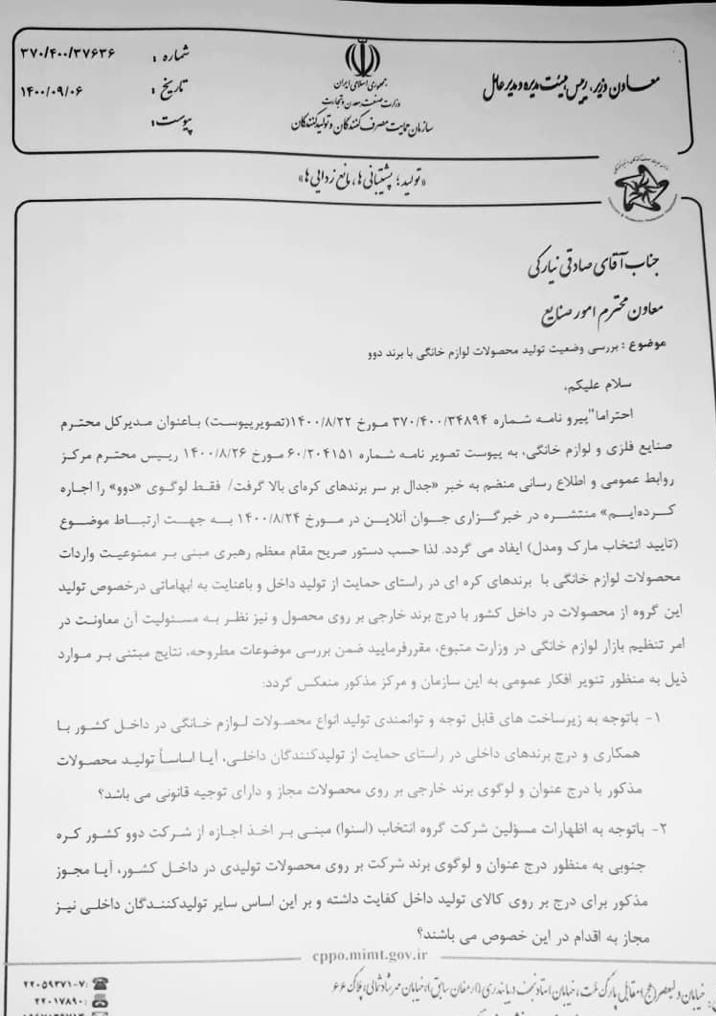 شماره : ۳۷۰/۴۰۰/۳۷۶۳۶
تاریخ : ۱۴۰۰/۰۹/۰۶
پیوست:
جمهوری اسلامی ایران
وزارت صنعت، معدن و تجارت
سازمان حمایت مصرف کنندگان و تولیدکنندگان
معاون وزیر، رییس هیئت مدیره و مدیر عامل
«تولید؛ پشتیبانی ها، مانع زدایی ها»
جناب آقای صادقی نیارکی
معاون محترم امور صنایع
موضوع : بررسی وضعیت تولید محصولات لوازم خانگی با برند دوو
سلام علیکم،
احتراما"پیرو نامه شماره ۳۷۰/۴۰۰/۳۴۸۹۴ مورخ ۱۴۰۰/۸/۲۲(تصویرپیوست) باعنوان مدیرکل محترم
صنایع فلزی و لوازم خانگی، به پیوست تصویر نامه شماره ۶۰/۲۰۴۱۵۱ مورخ ۱۴۰۰/۸/۲۶ رییس محترم مرکز
روابط عمومی و اطلاع رسانی منضم به خبر «جدال بر سر برندهای کره‌ای بالا گرفت/ فقط لوگوی «دوو» را اجاره
کرده‌ایم» منتشره در خبرگزاری جوان آنلاین در مورخ ۱۴۰۰/۸/۲۴ به جهت ارتباط موضوع
(تایید انتخاب مارک ومدل) ایفاد می گردد. لذا حسب دستور صریح مقام معظم رهبری مبنی بر ممنوعیت واردات
محصولات لوازم خانگی با برندهای کره ای در راستای حمایت از تولید داخل و باعنایت به ابهاماتی درخصوص تولید
این گروه از محصولات در داخل کشور با درج برند خارجی بر روی محصول و نیز نظر به مسئولیت آن معاونت در
امر تنظیم بازار لوازم خانگی در وزارت متبوع، مقررفرمایید ضمن بررسی موضوعات مطروحه، نتایج مبتنی بر موارد
ذیل به منظور تنویر افکار عمومی به این سازمان و مرکز مذکور منعکس گردد:
۱- باتوجه به زیرساخت های قابل توجه و توانمندی تولید انواع محصولات لوازم خانگی در داخل کشور با
همکاری و درج برندهای داخلی در راستای حمایت از تولیدکنندگان داخلی، آیا اساساً تولید محصولات
مذکور با درج عنوان و لوگوی برند خارجی بر روی محصولات مجاز و دارای توجیه قانونی می باشد؟
۲- باتوجه به اظهارات مسؤلین شرکت گروه انتخاب (اسنوا) مبنی بر اخذ اجازه از شرکت دوو کشور کره
جنوبی به منظور درج عنوان و لوگوی برند شرکت بر روی محصولات تولیدی در داخل کشور، آیا مجوز
مذکور برای درج بر روی کالای تولید داخل کفایت داشته و بر این اساس سایر تولیدکنندگان داخلی نیز
مجاز به اقدام در این خصوص می باشند؟
cppo.mimt.gov.ir
خیابان ولیعصر(عج)، مقابل پارک ملت، خیابان استاد نجف دریابندری(ارمغان سابق)، خیابان مهرشاد شمالی، پلاک ۶۶
۲۲۰۵۹۳۷۱-۷:
۲۲۰۱۷۸۹۰ :